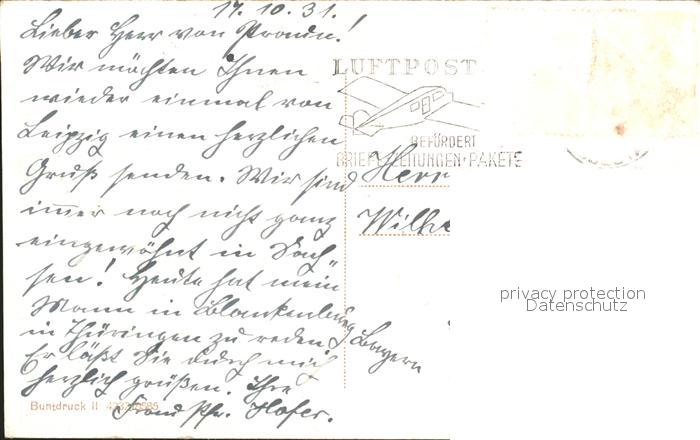 17. 10. 31.
Lieber Herr von Prondn!
Wir möchten Ihnen
wieder einmal von
Leipzig einen herzlichen
Gruß senden. Wir sind
immer noch nicht ganz
eingewöhnt in Sach-
sen! Heute hat mein
Mann in Blankenburg
in Thüringen zu reden.
Er läßt Sie durch mich
herzlich grüßen. Ihre
Frau Pfr. Hofer.
LUFTPOST
BEFÖRDERT
BRIEFE·ZEITUNGEN·PAKETE
Herr
Wilhe
Bayern
privacy protection
Datenschutz
Buntdruck II